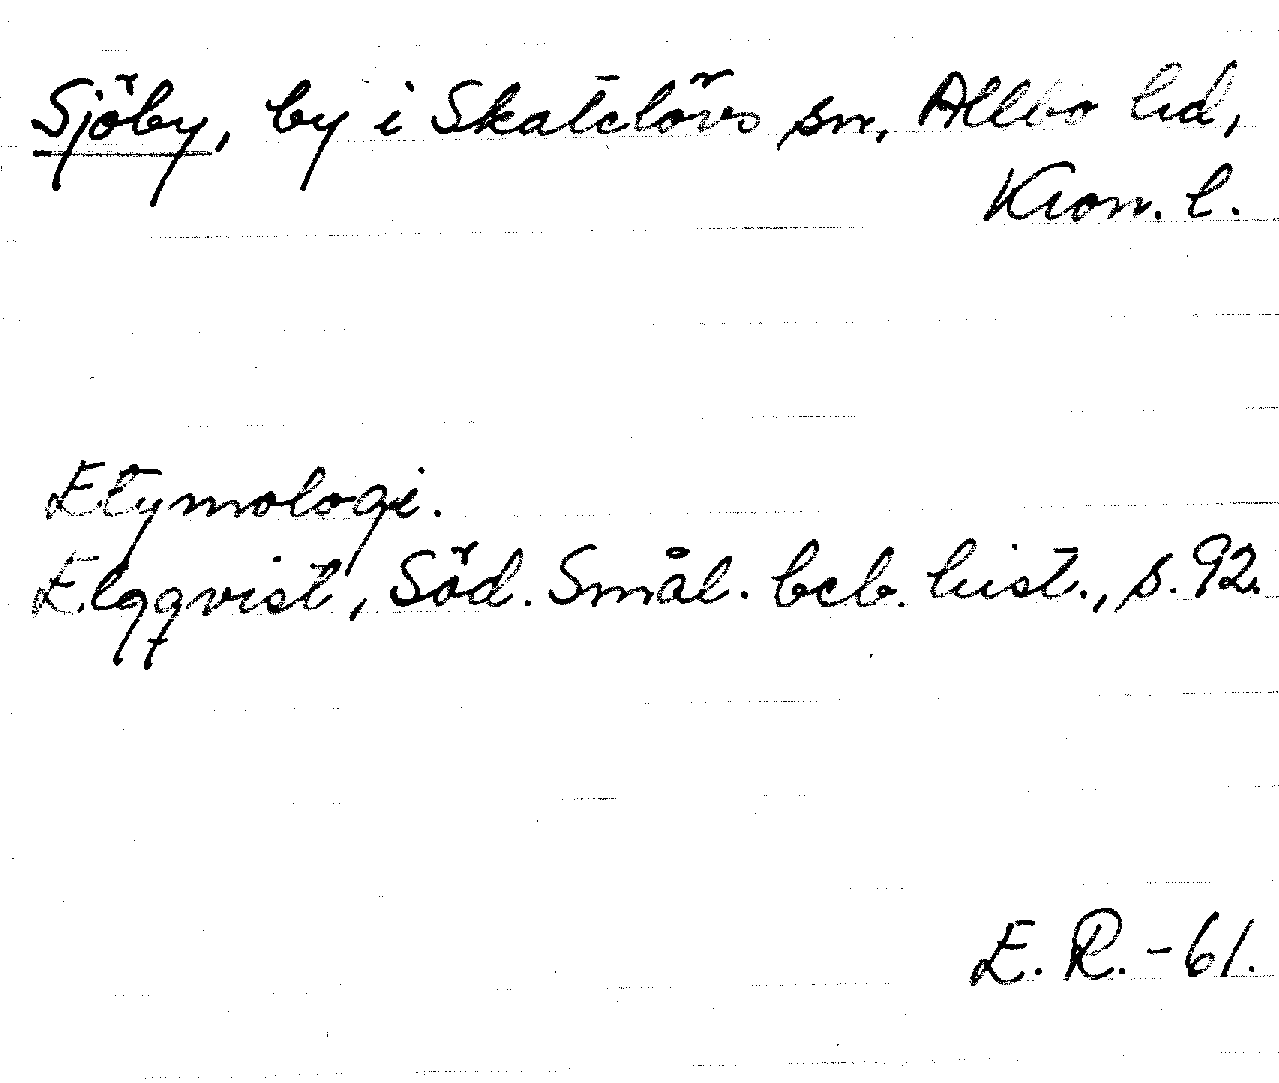 Sjöby, by i Skatelövs sn, Allbo hd,
Kron. l.
Etymologi.
Elgqvist, Söd. Smål. beb. hist., s. 92.
E. R. -61.